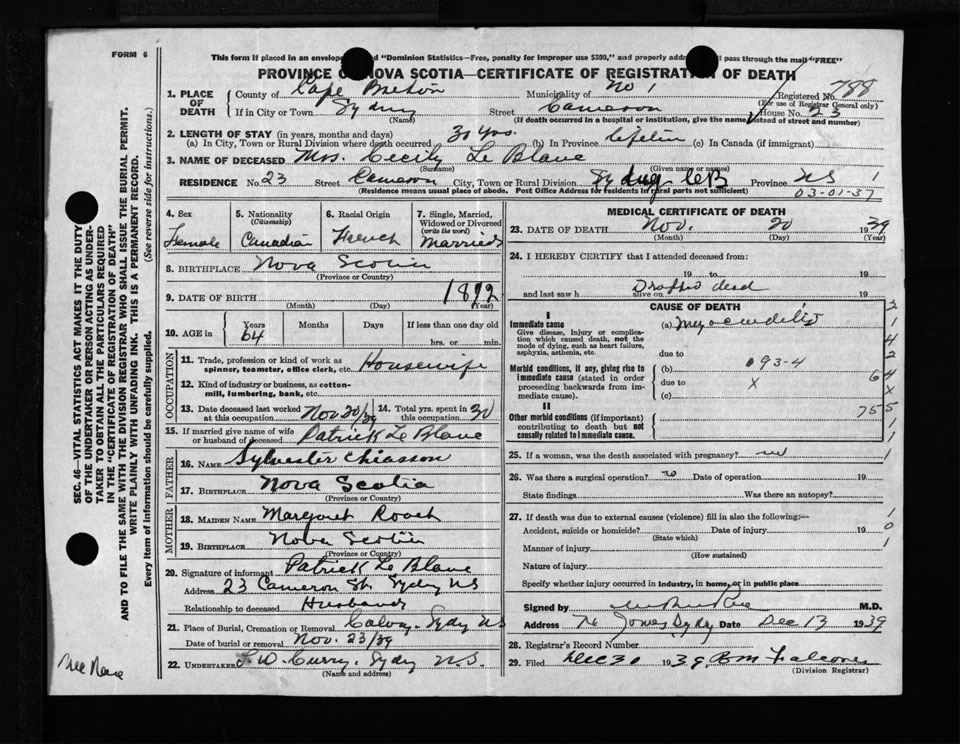 FORM 6
This form if placed in an envelope d "Dominion Statistics—Free, penalty for improper use $300," and properly addre pass through the mail "FREE"
PROVINCE OF NOVA SCOTIA—CERTIFICATE OF REGISTRATION OF DEATH
1. PLACE OF DEATH
County of Cape Breton Municipality of No 1 Registered No. 788
(For use of Registrar General only)
If in City or Town Sydney Street Cameron House No. 23
(Name) (If death occurred in a hospital or institution, give the name instead of street and number)
2. LENGTH OF STAY (in years, months and days)
(a) In City, Town or Rural Division where death occurred 30 yrs. (b) In Province Lifetime (c) In Canada (if immigrant)
3. NAME OF DECEASED Mrs. Cecily Le Blanc
(Surname) (Given name or names)
RESIDENCE No. 23 Street Cameron City, Town or Rural Division Sydney CB Province NS 1
(Residence means usual place of abode. Post Office Address for residents in rural parts not sufficient) 03-01-37
4. Sex Female
5. Nationality (Citizenship) Canadian
6. Racial Origin French
7. Single, Married, Widowed or Divorced (write the word) Married
8. BIRTHPLACE Nova Scotia
(Province or Country)
9. DATE OF BIRTH
(Month) (Day) (Year)
10. AGE in Years 64 Months Days If less than one day old
hrs. or min.
OCCUPATION
11. Trade, profession or kind of work as spinner, teamster, office clerk, etc. Housewife
12. Kind of industry or business, as cotton-mill, lumbering, bank, etc.
13. Date deceased last worked at this occupation Nov 20/39
14. Total yrs. spent in this occupation 30
15. If married give name of wife or husband of deceased Patrick Le Blanc
FATHER
16. NAME Sylvester Chiasson
17. BIRTHPLACE Nova Scotia
(Province or Country)
MOTHER
18. MAIDEN NAME Margaret Roach
19. BIRTHPLACE Nova Scotia
(Province or Country)
20. Signature of informant Patrick Le Blanc
Address 23 Cameron St. Sydney NS
Relationship to deceased Husband
21. Place of Burial, Cremation or Removal Calvary. Sydney NS
Date of burial or removal Nov. 23/39
22. UNDERTAKER W. Curry. Sydney N.S.
(Name and address)
MEDICAL CERTIFICATE OF DEATH
23. DATE OF DEATH Nov. 20 1939
(Month) (Day) (Year)
24. I HEREBY CERTIFY that I attended deceased from:
19 to 19
and last saw h alive on Dropped dead 19
CAUSE OF DEATH
I
Immediate cause
Give disease, injury or complication which caused death, not the mode of dying, such as heart failure, asphyxia, asthenia, etc.
(a) Myocarditis
due to
Morbid conditions, if any, giving rise to immediate cause (stated in order proceeding backwards from immediate cause).
(b) 093-4
due to X
(c)
II
Other morbid conditions (if important) contributing to death but not causally related to immediate cause.
2
1
4
2
64
X
755
1
1
25. If a woman, was the death associated with pregnancy? no
26. Was there a surgical operation? no Date of operation 19
State findings Was there an autopsy?
27. If death was due to external causes (violence) fill in also the following:—
Accident, suicide or homicide? Date of injury 19
(State which)
Manner of injury
(How sustained)
Nature of injury
Specify whether injury occurred in industry, in home, or in public place
1
0
1
Signed by M.D.
Address Sydney Date Dec 13 1939
28. Registrar's Record Number
29. Filed Dec 30 1939
(Division Registrar)
SEC. 46—VITAL STATISTICS ACT MAKES IT THE DUTY
OF THE UNDERTAKER OR PERSON ACTING AS UNDER-
TAKER TO OBTAIN ALL THE PARTICULARS REQUIRED
IN THE "CERTIFICATE OF REGISTRATION OF DEATH"
AND TO FILE THE SAME WITH THE DIVISION REGISTRAR WHO SHALL ISSUE THE BURIAL PERMIT.
WRITE PLAINLY WITH UNFADING INK. THIS IS A PERMANENT RECORD.
Every item of information should be carefully supplied. (See reverse side for instructions.)